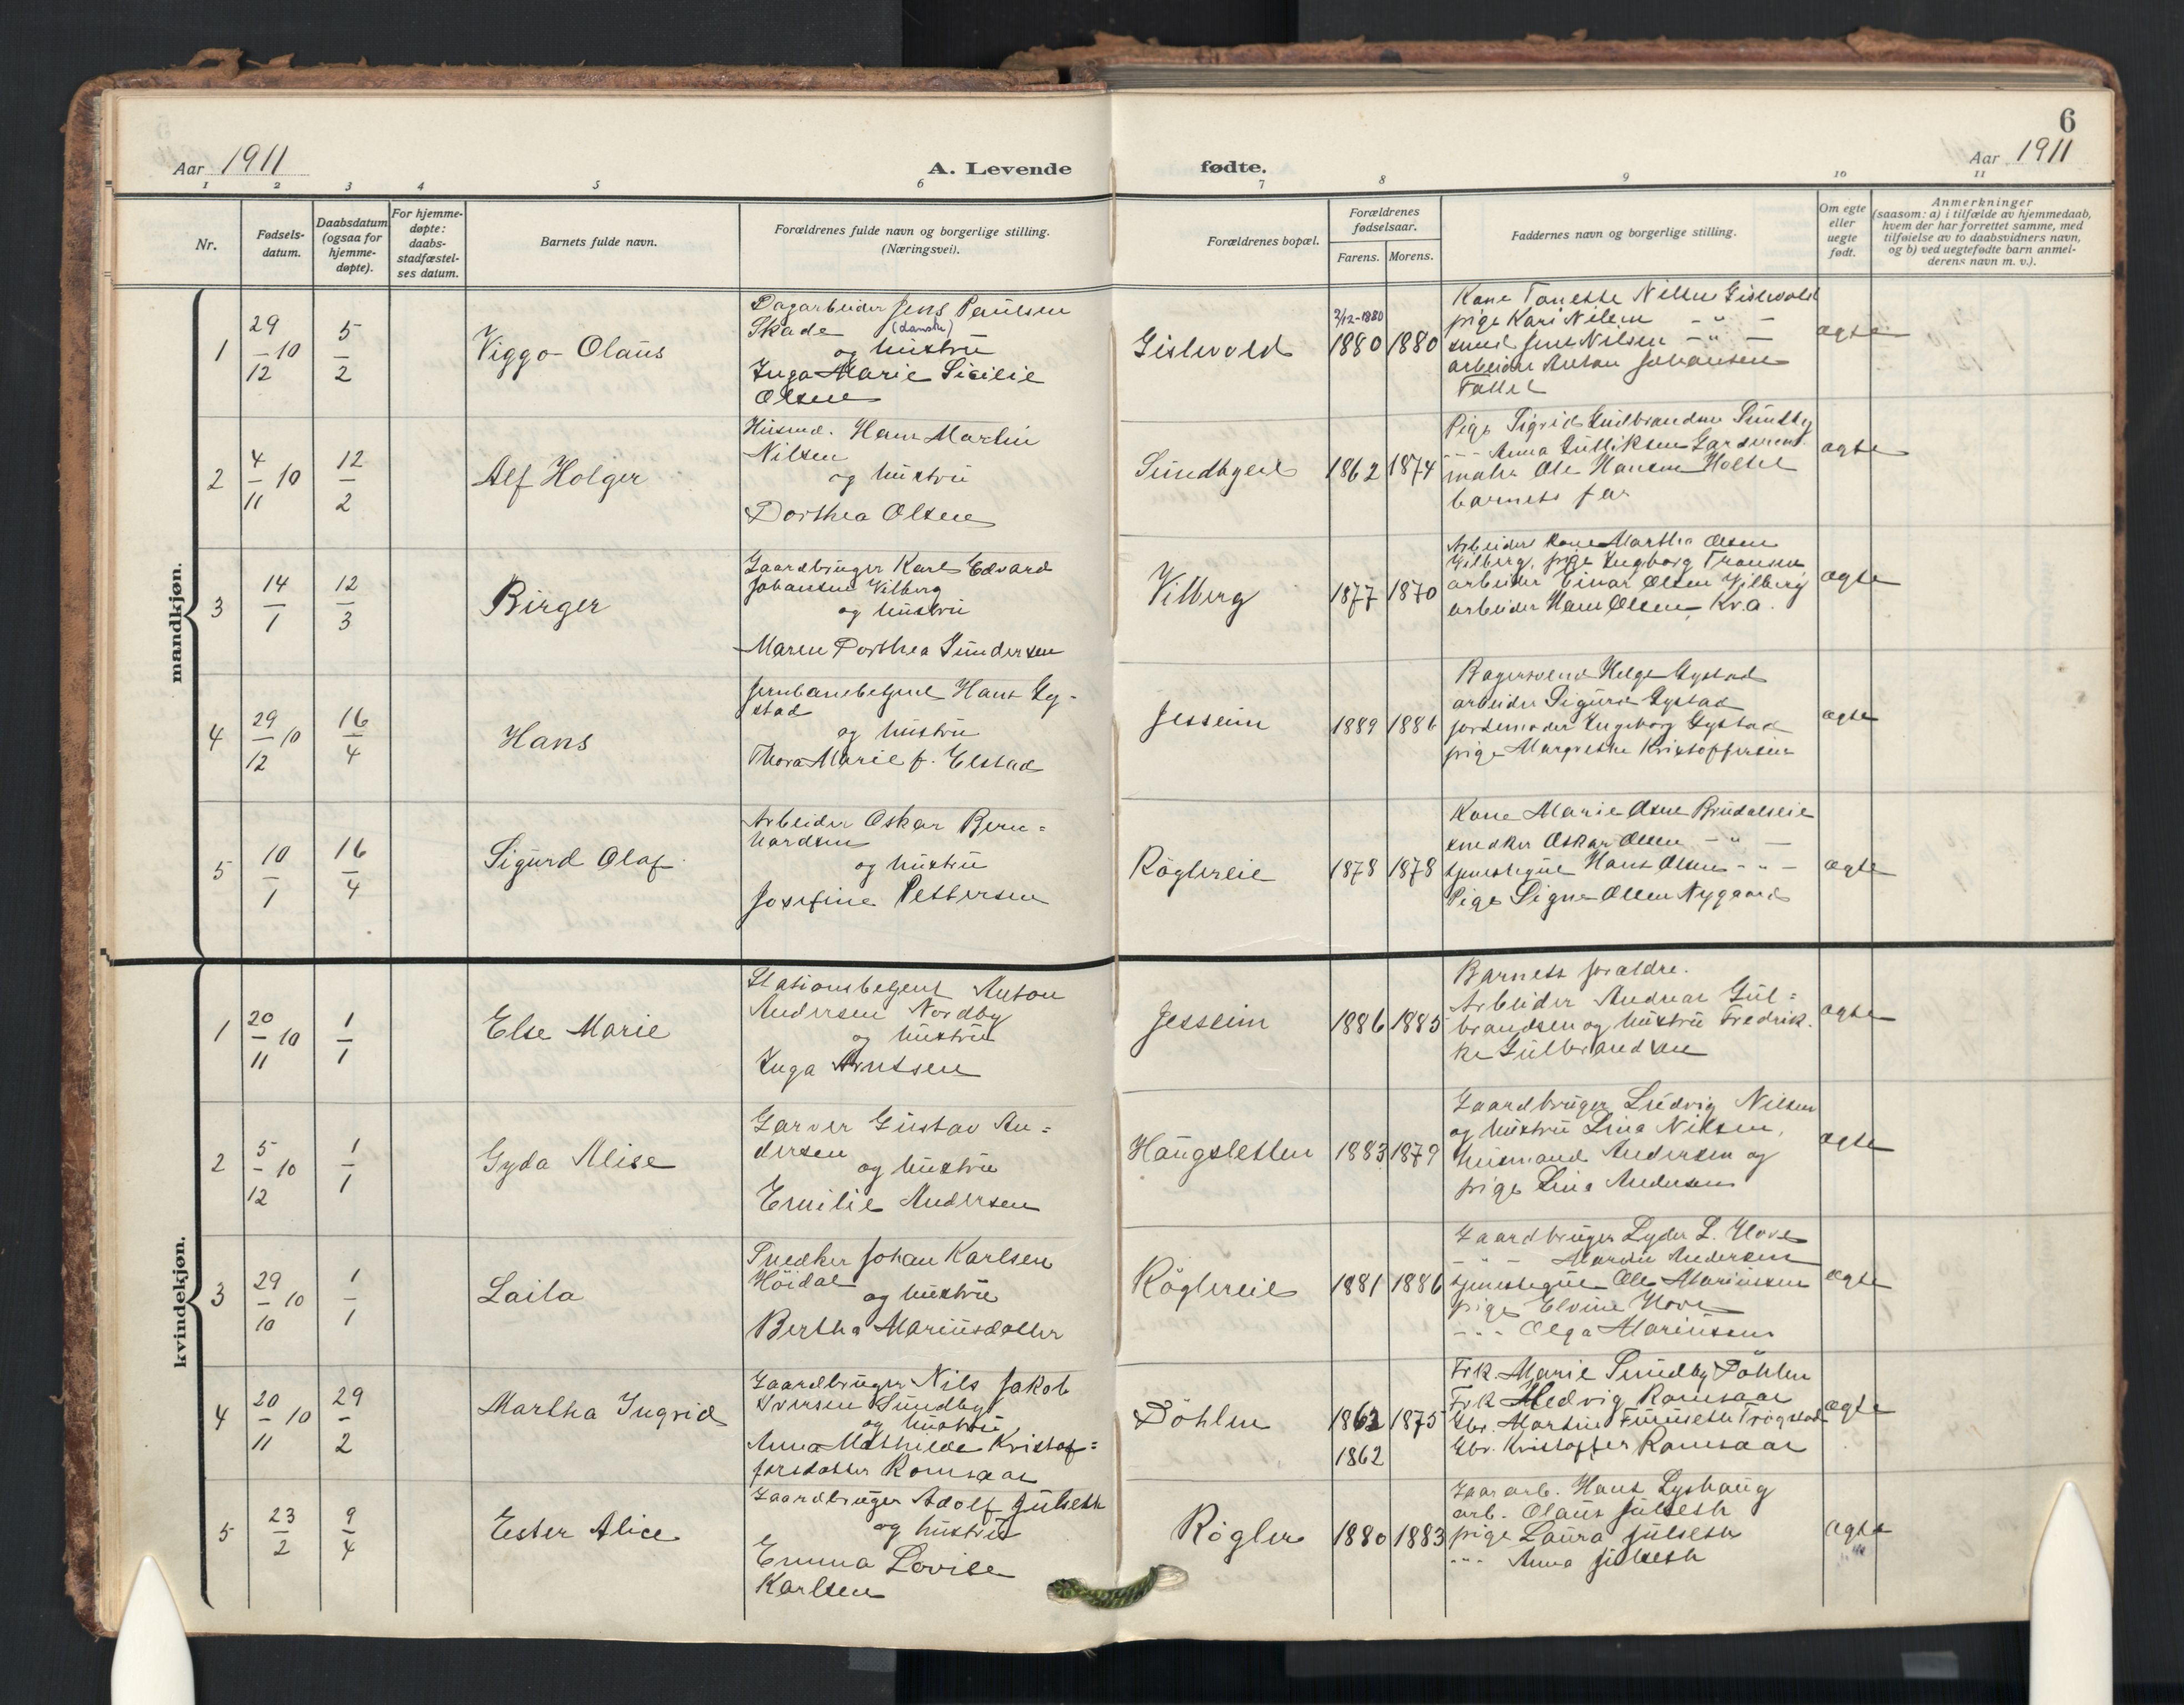 6
Aar 1911
A. Levende fødte.
Aar 1911
1 2 3 4 5 6 7 8 9 10 11
Nr.
Fødsels-
datum.
Daabsdatum
(ogsaa for
hjemme-
døpte).
For hjemme-
døpte:
daabs-
stadfæstel-
ses datum.
Barnets fulde navn.
Forældrenes fulde navn og borgerlige stilling.
(Næringsvei).
Forældrenes bopæl.
Forældrenes
fødselsaar.
Farens. Morens.
Faddernes navn og borgerlige stilling.
Om egte
eller
uegte
født.
Anmerkninger
(saasom: a) i tilfælde av hjemmedaab,
hvem der har forrettet samme, med
tilføielse av to daabsvidners navn,
og b) ved uegtefødte barn anmel-
derens navn m. v.).
mandkjøn.
1
29/12 10
5/2
Viggo Olaus
Dagarbeider Jens Paulsen
Skade (dansk)
og hustru
Inga Marie Sicilie
Olsen
Gislevold
2/12-1880
1880 1880
Kone Tanette Nilsen Gislevold
pige Kari Nilsen - " -
smed Jens Nilsen - " -
arbeider Anton Johansen
egte
2
4/11 10
12/2
Alf Holger
Husmd. Hans Martin
Nilsen
og hustru
Dorthea Olsen
Sundbyeie
1862 1874
Pige Sigrid Gulbrandsen Sundby
- " - Anna Gulliksen
maler Ole Hansen Holtet
barnets far
egte
3
14/1
12/3
Birger
Gaardbruger Karl Edvard
Johansen Vilberg
og hustru
Maren Dorthea Gundersen
Vilberg
1877 1870
Arbeiders kone Martha Olsen
Vilberg, pige Ingborg Fransen
arbeider Einar Olsen Vilberg
arbeider Hans Olsen Kv.a.
egte
4
29/12 10
16/4
Hans
Jernbanebetjent Hans Gy-
stad
og hustru
Thora Marie f. Elstad
Jesseim
1889 1886
Bagersvend Helge Gystad
arbeider Sigurd Gystad
jordemoder Ingeborg Gystad
pige Margrethe Kristoffersen
egte
5
10/1
16/4
Sigurd Olaf
Arbeider Oskar Bern=
hardsen
og hustru
Josefine Pettersen
Röglereie
1878 1878
Kone Marie Olsen Brudalseie
snedker Oskar Olsen - " -
tjenestegut Hans Olsen - " -
Pige Signe Olsen Nygaard
egte
kvindekjøn.
1
20/11 10
1/1
Else Marie
Stationsbetjent Anton
Andersen Nordby
og hustru
Inga Arntsen
Jesseim
1886 1885
Barnets foraldre.
Arbeider Andreas Gul=
brandsen og hustru Fredrik-
ke Gulbrandsen
egte
2
5/12 10
1/1
Gyda Alise
Garver Gustav An=
dersen
og hustru
Emilie Andersen
Haugsletten
1883 1879
Gaardbruger Ludvig Nilsen
og hustru Lina Nilsen,
husmand Andersen og
pige Lina Andersen
egte
3
29/10 10
1/1
Laila
Snedker Johan Karlsen
Höidal
og hustru
Bertha Mariusdatter
Röglereie
1881 1886
Gaardbruger Lyder L. Hove
- " - Martin Andersen
tjenestegut Ole Mariussen
pige Elvine Hove
- " - Olga Mariussen
egte
4
20/11 10
29/2
Martha Ingrid
Gaardbruger Nils Jakob
Iversen Sundby
og hustru
Anna Mathilde Kristof=
fersdatter Romsaas
Döhlen
1863 1875
1862
Frk. Marie Sundby Döhlen
Frk Hedvig Romsaas
Gbr. Martin Furuseth Trögstad
Gbr. Kristoffer Romsaas
egte
5
23/2
9/4
Ester Alice
Gaardbruger Adolf Julseth
og hustru
Emma Lovise
Karlsen
Rögler
1880 1883
Gaararb. Hans Lyshaug
arb. Olaus Julseth
pige Laura Julseth
- " - Anna Julseth
egte